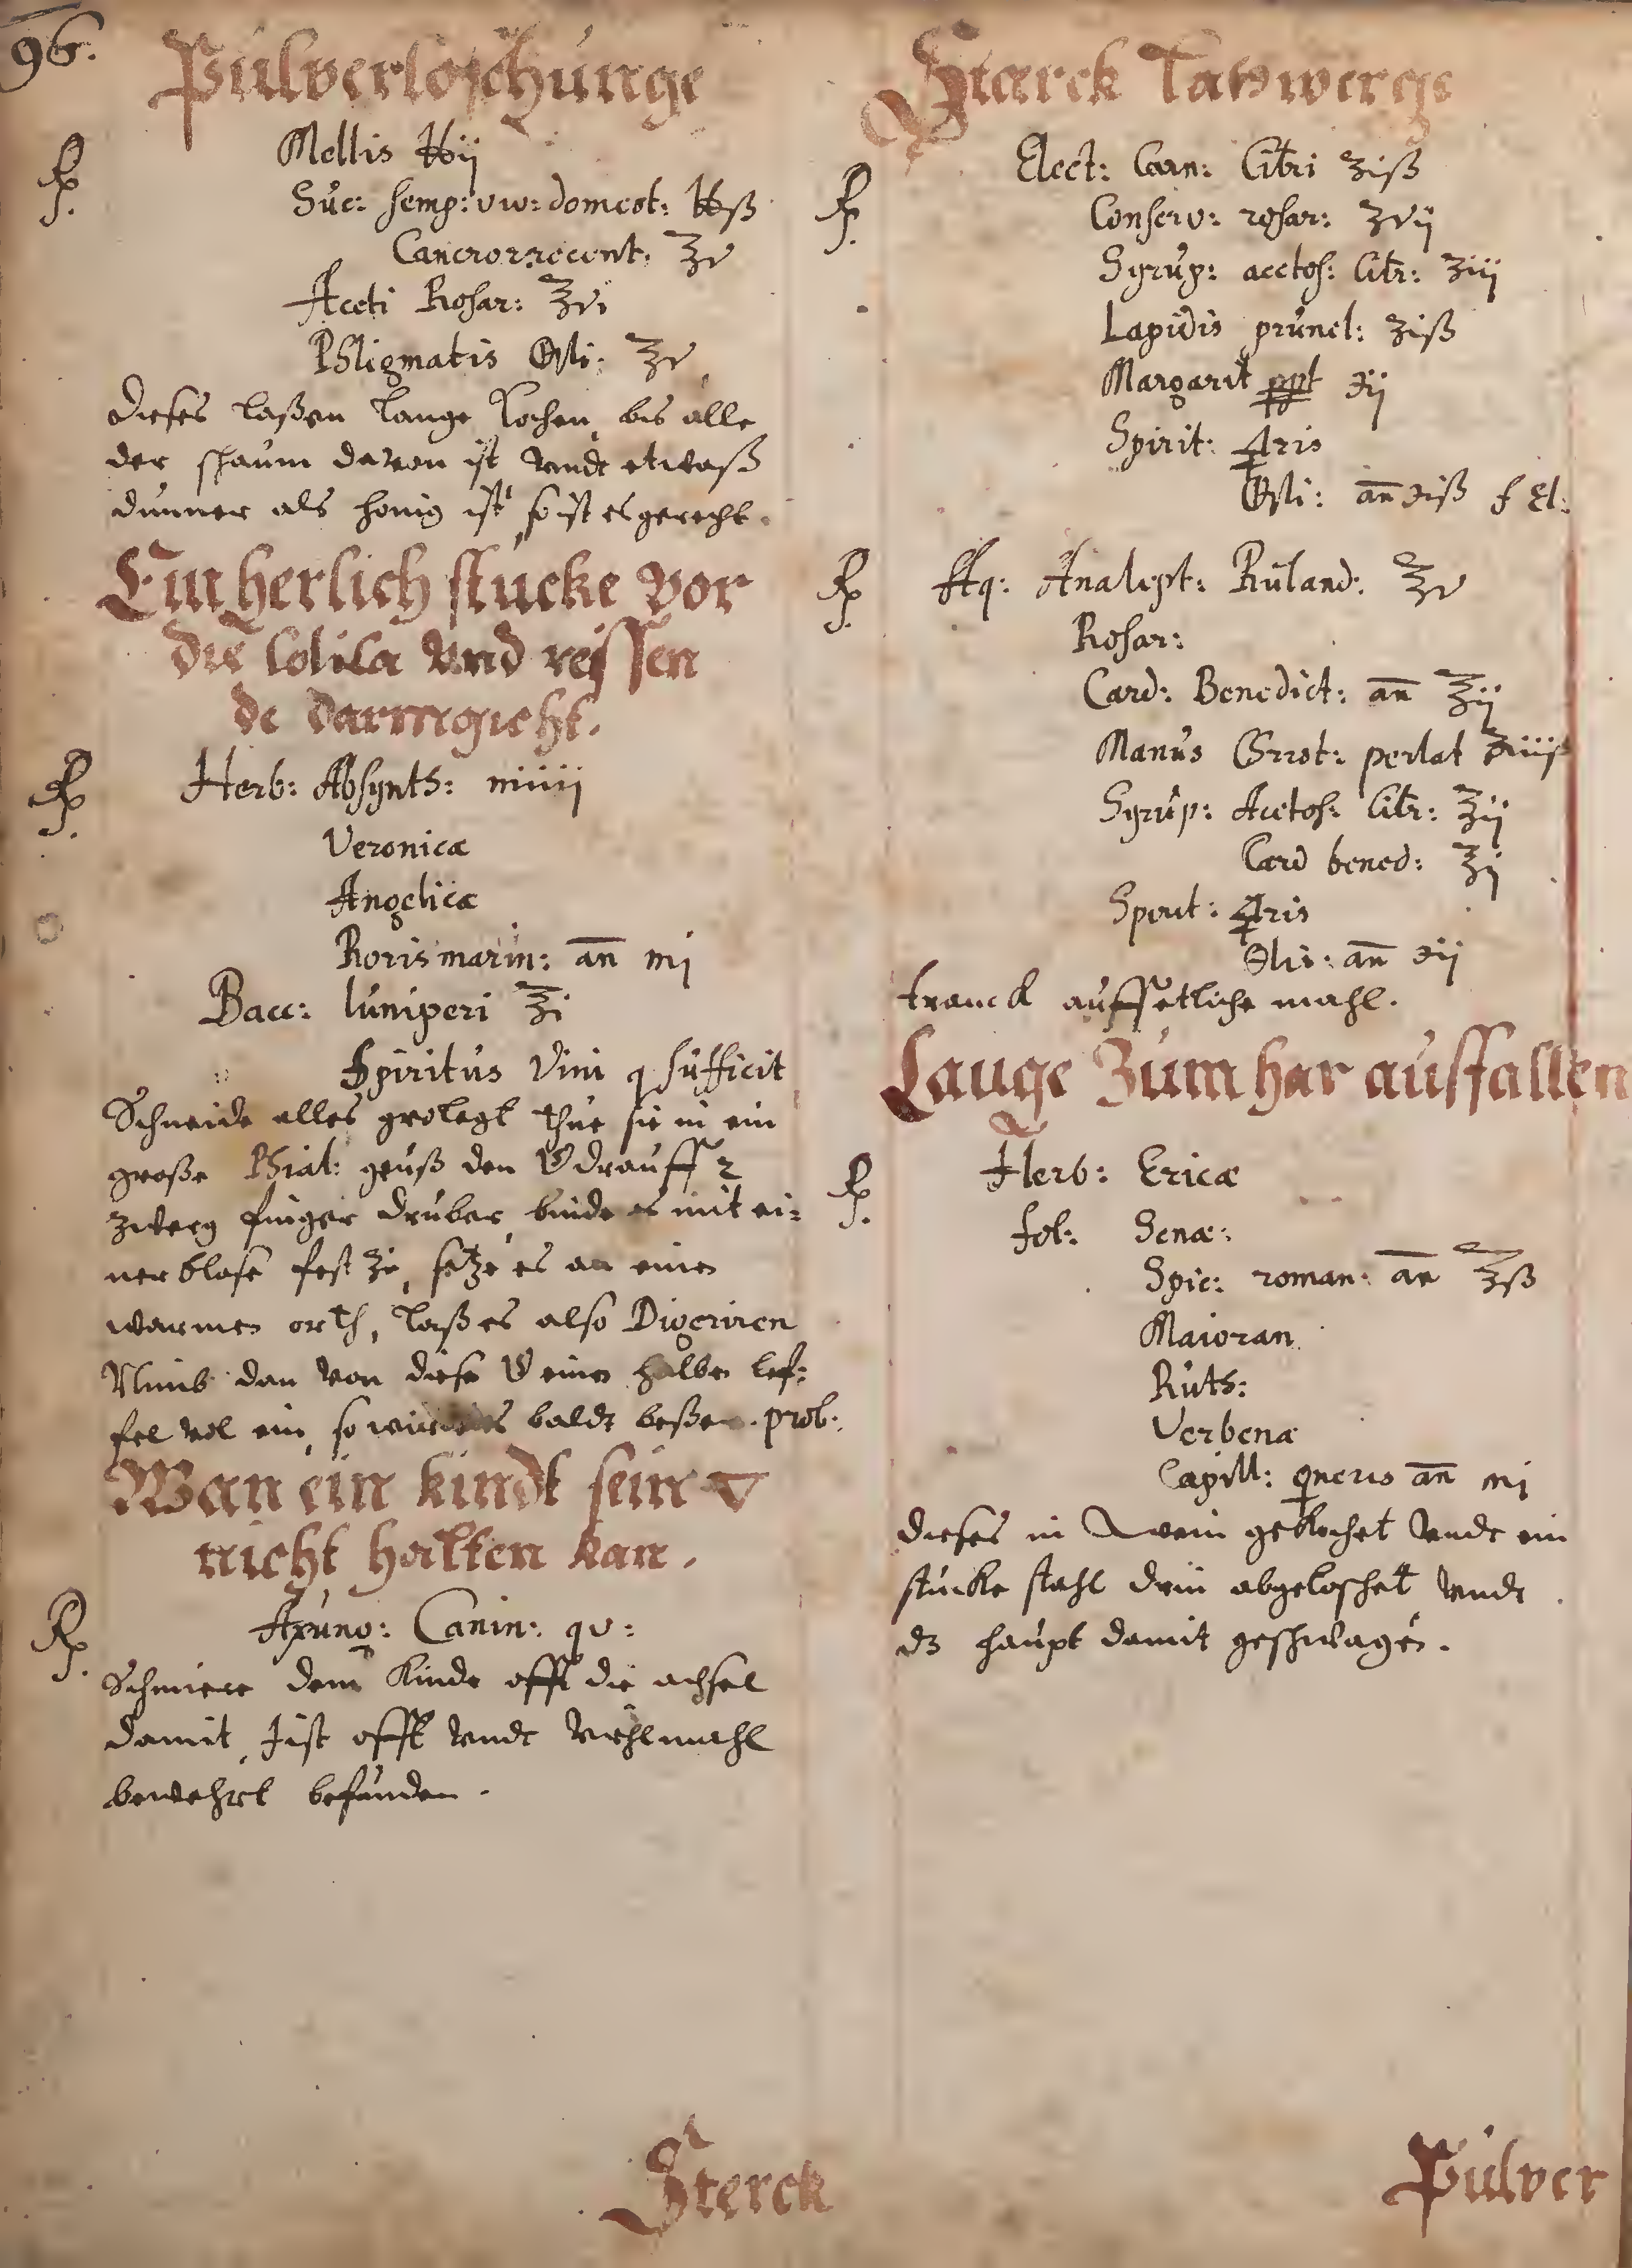 96.
Pulverloschunge
Rp. Mellis ℔ij
Suc: semp: viv: domest: ℔ß
Cancror recent: ℥v
Aceti Rosar: ℥vi
Phligmatis Oli: ℥v
dieses laßen lange kochen, bis alle
der schaum davon ist vndt etwaß
dunner als honig ist, so ist es gerecht.
Ein herlich stucke vor
die Colica vnd reissen
de darmgicht.
Rp. Herb: Absynth: miiij
Veronicæ
Angelicæ
Rorismarin: an̄ mj
Bacc: Iuniperi ℥i
Spiritus Vini q sufficit
Schneide alles grolegt thue sie in ein
große Phial: geuß den V drauff 2
zwerg finger druber, binde es mit ei=
ner blase fest zu, setze es an einen
warmen orth, laß es also Digeriren
Nimb dan von diese V einen halben lef=
fel vol ein, so wird es baldt beßer. prob:
Wan ein kindt sein
nicht halten kan.
Rp. Axung: Canin: qv:
Schmiere dem Kinde offt die achsel
damit, Jst offt vndt vielmahl
bewehrt befunden.
Sterck
Starck Latwerge
Rp. Elect: Carn: Citri ʒiß
Conserv: rosar: ʒvij
Syrup: acetos: Citr: ʒiij
Lapidis prunel: ʒiß
Margarit ppt ℈ij
Spirit: 🜍ris
Oli: an̄ ℈iß f El:
Rp. Aq: Analept: Ruland: ℥v
Rosar:
Card: Benedict: an̄ ℥ij
Manus Christ: perlat
Syrup: Acetos: Citr: ℥ij
Card bened: ℥j
Spirit: 🜍ris
Olis: an̄ ℈ij
tranck auff etliche mahl.
Lauge zum har ausfallen
Rp. Herb: Ericæ
fol: Senæ:
Spic: roman: an̄ ℥ß
Maioran
Ruth:
Verbenæ
Capill: ♀neris an̄ mj
dieses in wein gekochet vndt ein
stucke stahl drin abgeloschet vndt
dz haupt damit geschwagen.
Pulver